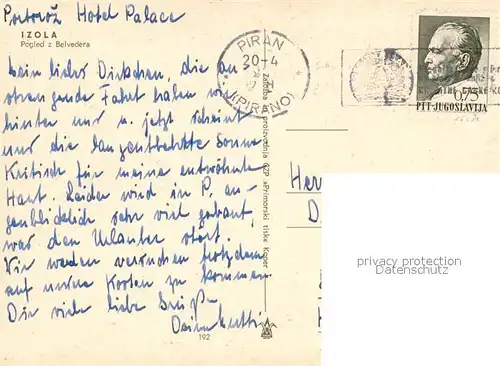 Portorož Hotel Palace
IZOLA
Pogled z Belvedera
Mein lieber Dickchen, die an
strengende Fahrt haben wir
hinter uns u. jetzt scheint
uns die langentbehrte Sonne
Kritisch für meine entwöhnte
Haut. Leider wird in P. au-
genblicklich sehr viel gebaut,
was den Urlauber stört.
Wir werden versuchen trotzdem
auf unsere Kosten zu kommen
Dir viele liebe Grüße
Dein Mutti
192
PIRAN
30-4
(PIRANO)
0,75
PTT JUGOSLAVIJA
proizvodnja GZP »Primorski tisk« Koper
Her
D
privacy protection
Datenschutz